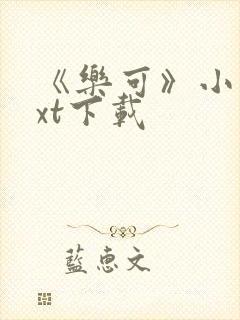 《樂可》小
xt下載
藍惠文